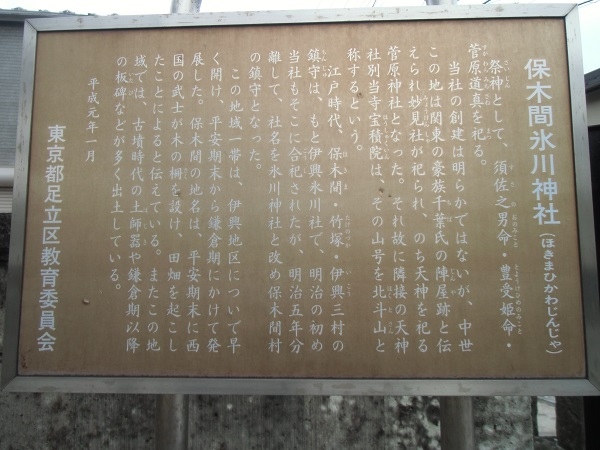 保木間氷川神社（ほきまひかわじんじゃ）
祭神として、須佐之男命・豊受姫命・
菅原道真を祀る。
当社の創建は明らかではないが、中世
この地は関東の豪族千葉氏の陣屋跡と伝
えられ妙見社が祀られ、のち天神を祀る
菅原神社となった。それ故に隣接の天神
社別当寺宝積院は、その山号を北斗山と
称するという。
江戸時代、保木間・竹塚・伊興三村の
鎮守は、もと伊興氷川社で、明治の初め
当社もそこに合祀されたが、明治五年分
離して、社名を氷川神社と改め保木間村
の鎮守となった。
この地域一帯は、伊興地区についで早
く開け、平安期末から鎌倉期にかけて発
展した。保木間の地名は、平安期末に西
国の武士が木の柵を設け、田畑を起こし
たことによると伝えている。またこの地
域では、古墳時代の土師器や鎌倉期以降
の板碑などが多く出土している。
平成元年一月
東京都足立区教育委員会